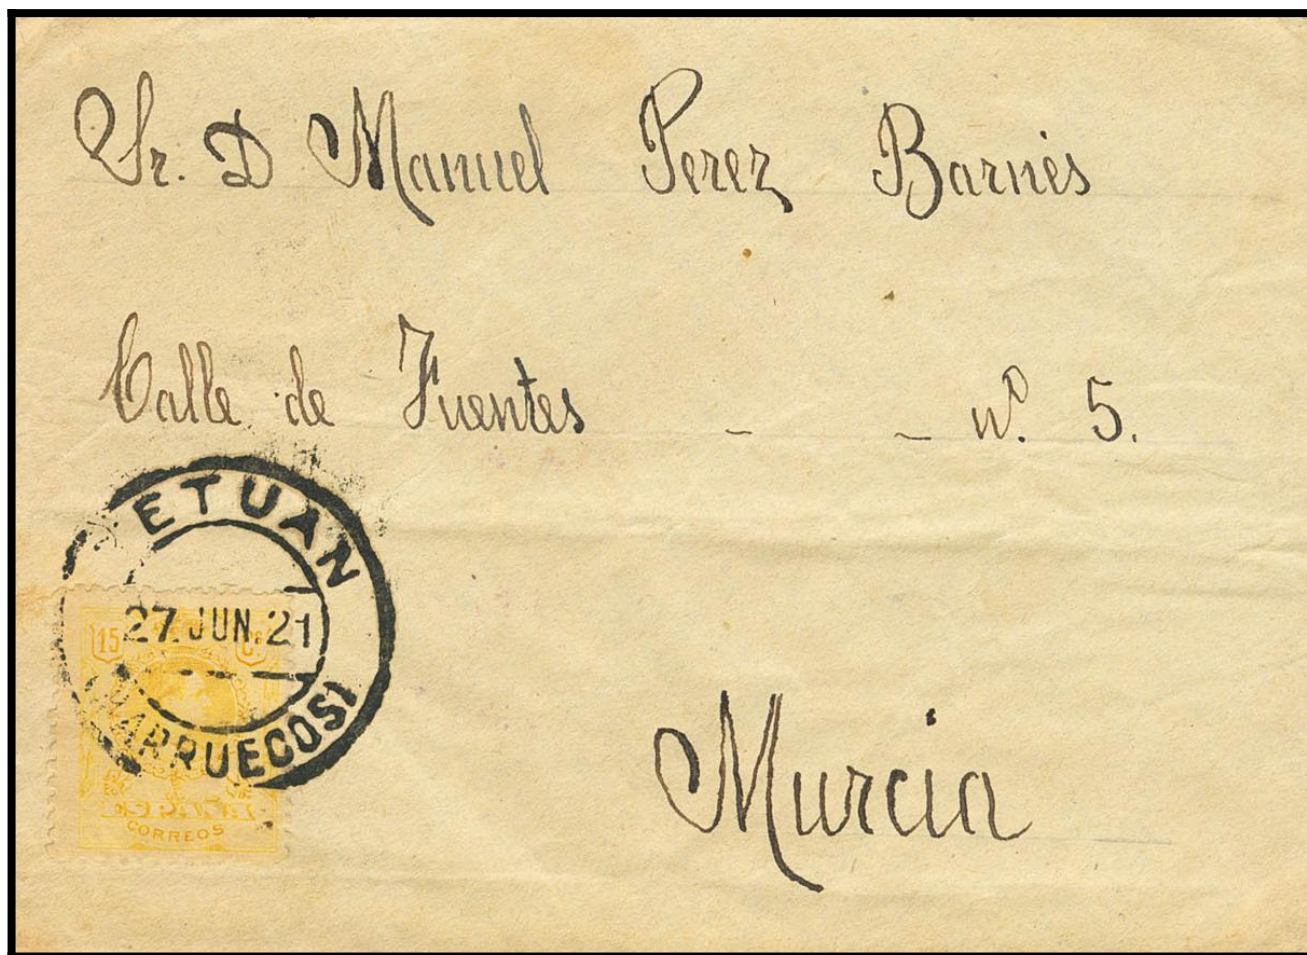 Sr. D Manuel Perez Barnés
Calle de Fuentes - - nº. 5.
ETUAN
27 JUN. 21
ARRUECOS)
15 Cs
CORREOS
Murcia